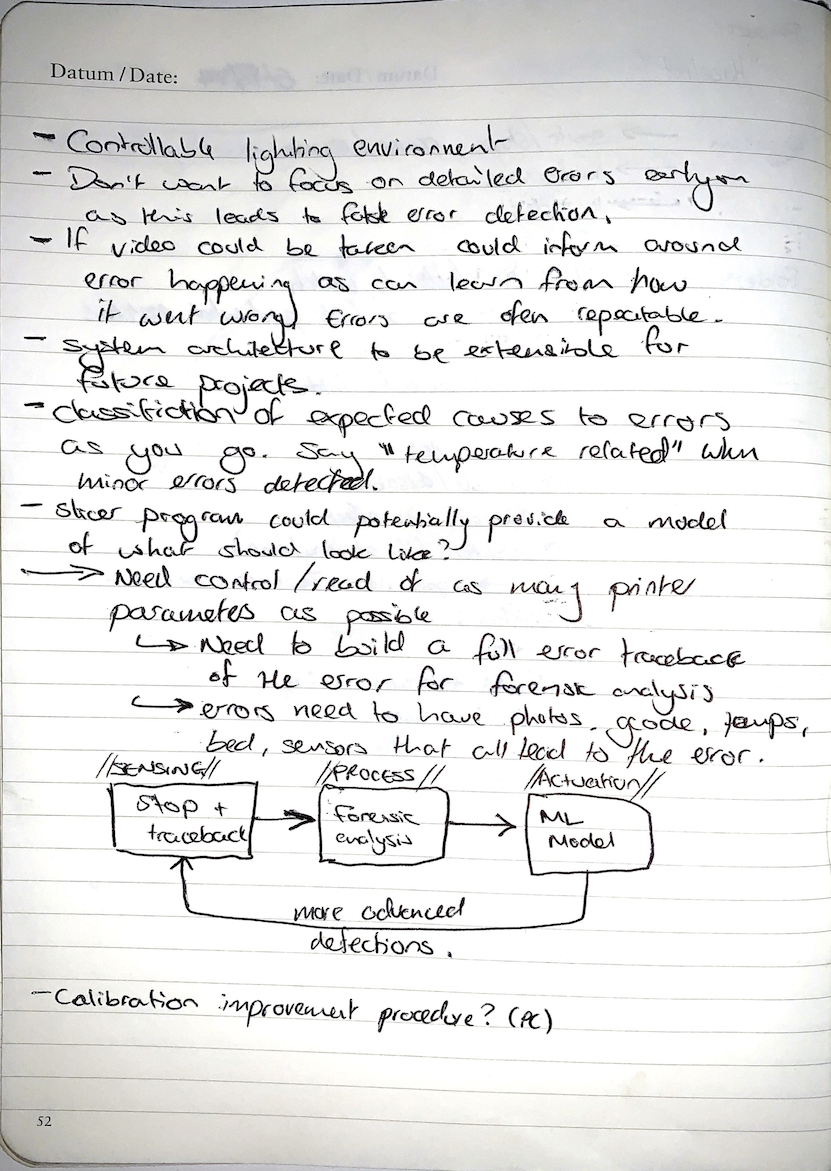 Datum / Date:
- Controllable lighting environment
- Don't want to focus on detailed errors early on
as this leads to false error detection.
- If video could be taken could inform around
error happening as can learn from how
it went wrong. Errors are often repeatable.
- system architecture to be extensible for
future projects.
- classifiction of expected causes to errors
as you go. Say "temperature related" when
minor errors detected.
- slicer program could potentially provide a model
of what should look like?
→ Need control/read of as many printer
parameters as possible
↳ Need to build a full error traceback
of the error for forensic analysis
↳ errors need to have photos. gcode, temps,
bed, sensors that all lead to the error.
//SENSING// //PROCESS// //Actuation//
Stop + Forensic ML
traceback analysis Model
more advanced
detections.
- Calibration improvement procedure? (PC)
52